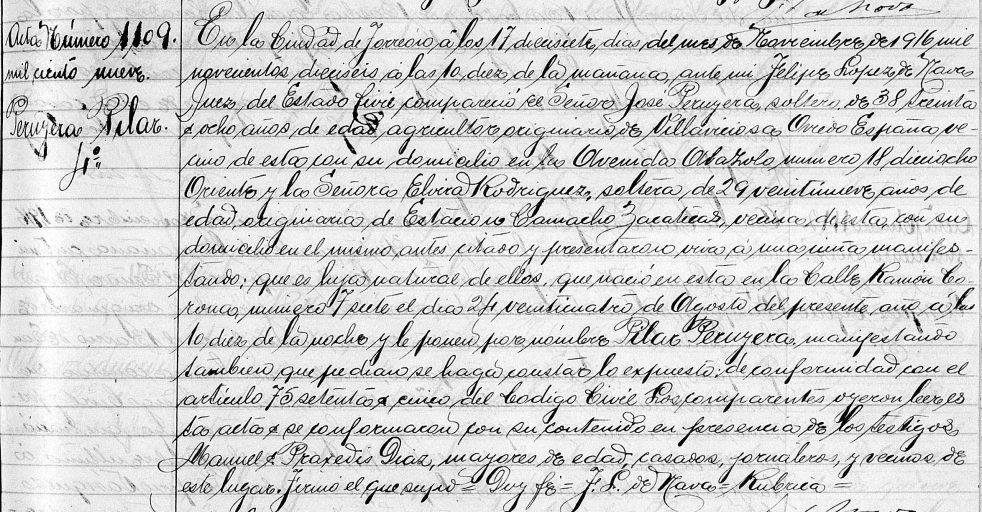 Acta Número 1109.
mil ciento nueve.
Peruyera Pilar.
En la Ciudad de Torreon, á los 17 diecisiete, dias, del mes de Noviembre, de 1916 mil
novecientos, dieciseis á las 10, diez de la mañana, ante mi Felipe Lopez de Nava
Juez, del Estado Civil compareció el Señor José Peruyera, soltero, de 38 treinta
y ocho, años, de edad, agricultor, originario de Villaviciosa Oviedo España, ve-
cino de esta, con su domicilio en la Avenida Abasolo numero 18 dieciocho
Oriente y la Señora Elvira Rodriguez, soltera, de 29 veintinueve, años de
edad, originaria de Estacion Camacho Zacatecas, vecina, de esta, con su
domicilio en el mismo, antes citado y presentaron viva á una niña manifes-
tando; que es hija natural de ellos, que nació en esta en la Calle Ramón Co-
rona, numero 7 siete el dia 24 veinticuatro de Agosto del presente, año, á las
10, diez de la noche y le ponen por nombre, Pilar Peruyera, manifestando
tambien que pedian se haga constar lo expuesto; de conformidad con el
articulo 75 setenta y cinco del Codigo Civil Los comparentes oyeron leer es
ta acta y se conformaron con su contenido en presencia de los testigos,
Manuel y Praxedis Diaz, mayores de edad, casados, jornaleros, y vecinos de
este lugar. Firmó el que supo = Doy fé = F. L. de Nava = Rubrica =